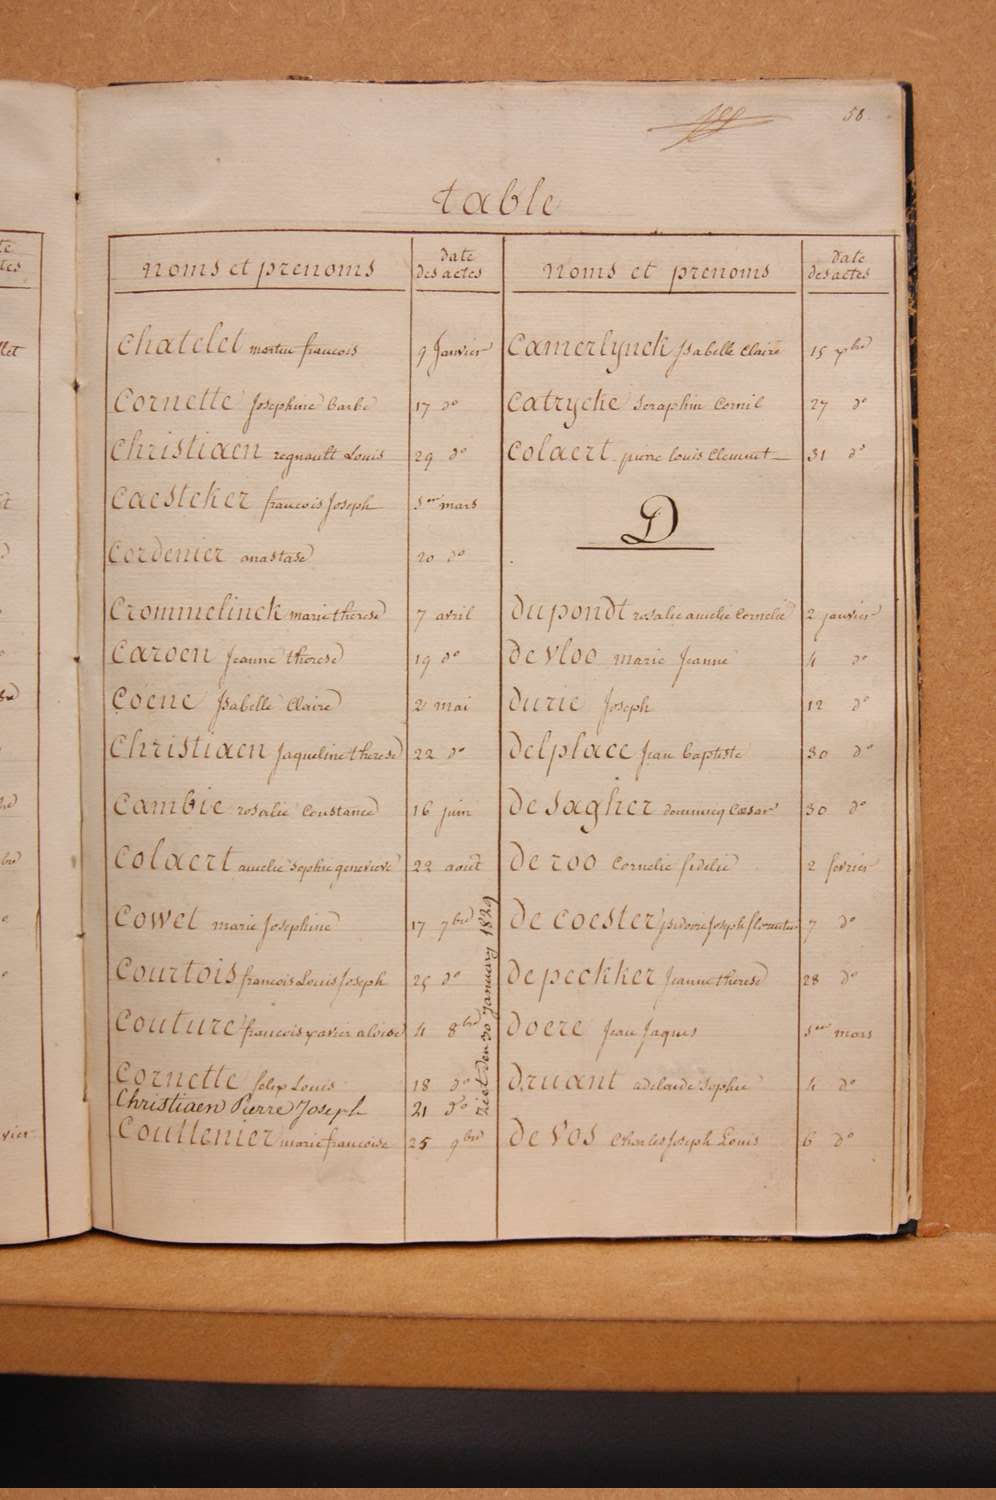 58
table
noms et prenoms
date
des actes
Chatelet martin francois 9 Janvier
Cornette Josephine barbe 17 do
Christiaen regnault Louis 29 do
Caesteker francois Joseph 5 mars
Cordenier anastase 20 do
Crommelinck marie therese 7 avril
Caroen Jeanne therese 19 do
Coene Isabelle Claire 2 mai
Christiaen Jaqueline therese 22 do
Cambie rosalie Constance 16 juin
Colaert amelie Sophie genevieve 22 aout
Cowet marie Josephine 17 7bre
Courtois francois Louis Joseph 25 do
Couture francois xavier aloise 4 8bre
Cornette felix Louis 18 do
Christiaen Pierre Joseph 21 do
Couttenier marie francoise 25 9bre
ziet den 30 January 1829
noms et prenoms
date
des actes
Camerlynck Isabelle Claire 15 xbre
Catrycke Seraphin Cornil 27 do
Colaert pierre louis Clement 31 do
D
dupondt rosalie amelie Cornelie 2 janvier
de vloo marie Jeanne 4 do
durie Joseph 12 do
delplace Jean baptiste 30 do
de Sagher dominicq Cæsar 30 do
de roo Cornelie fidelie 2 fevrier
de Coester isidore Joseph florentin 7 do
de peckker Jeanne therese 28 do
doere Jean Jaques mars
druant adelaide Sophie 4 do
de vos Charles Joseph Louis 6 do